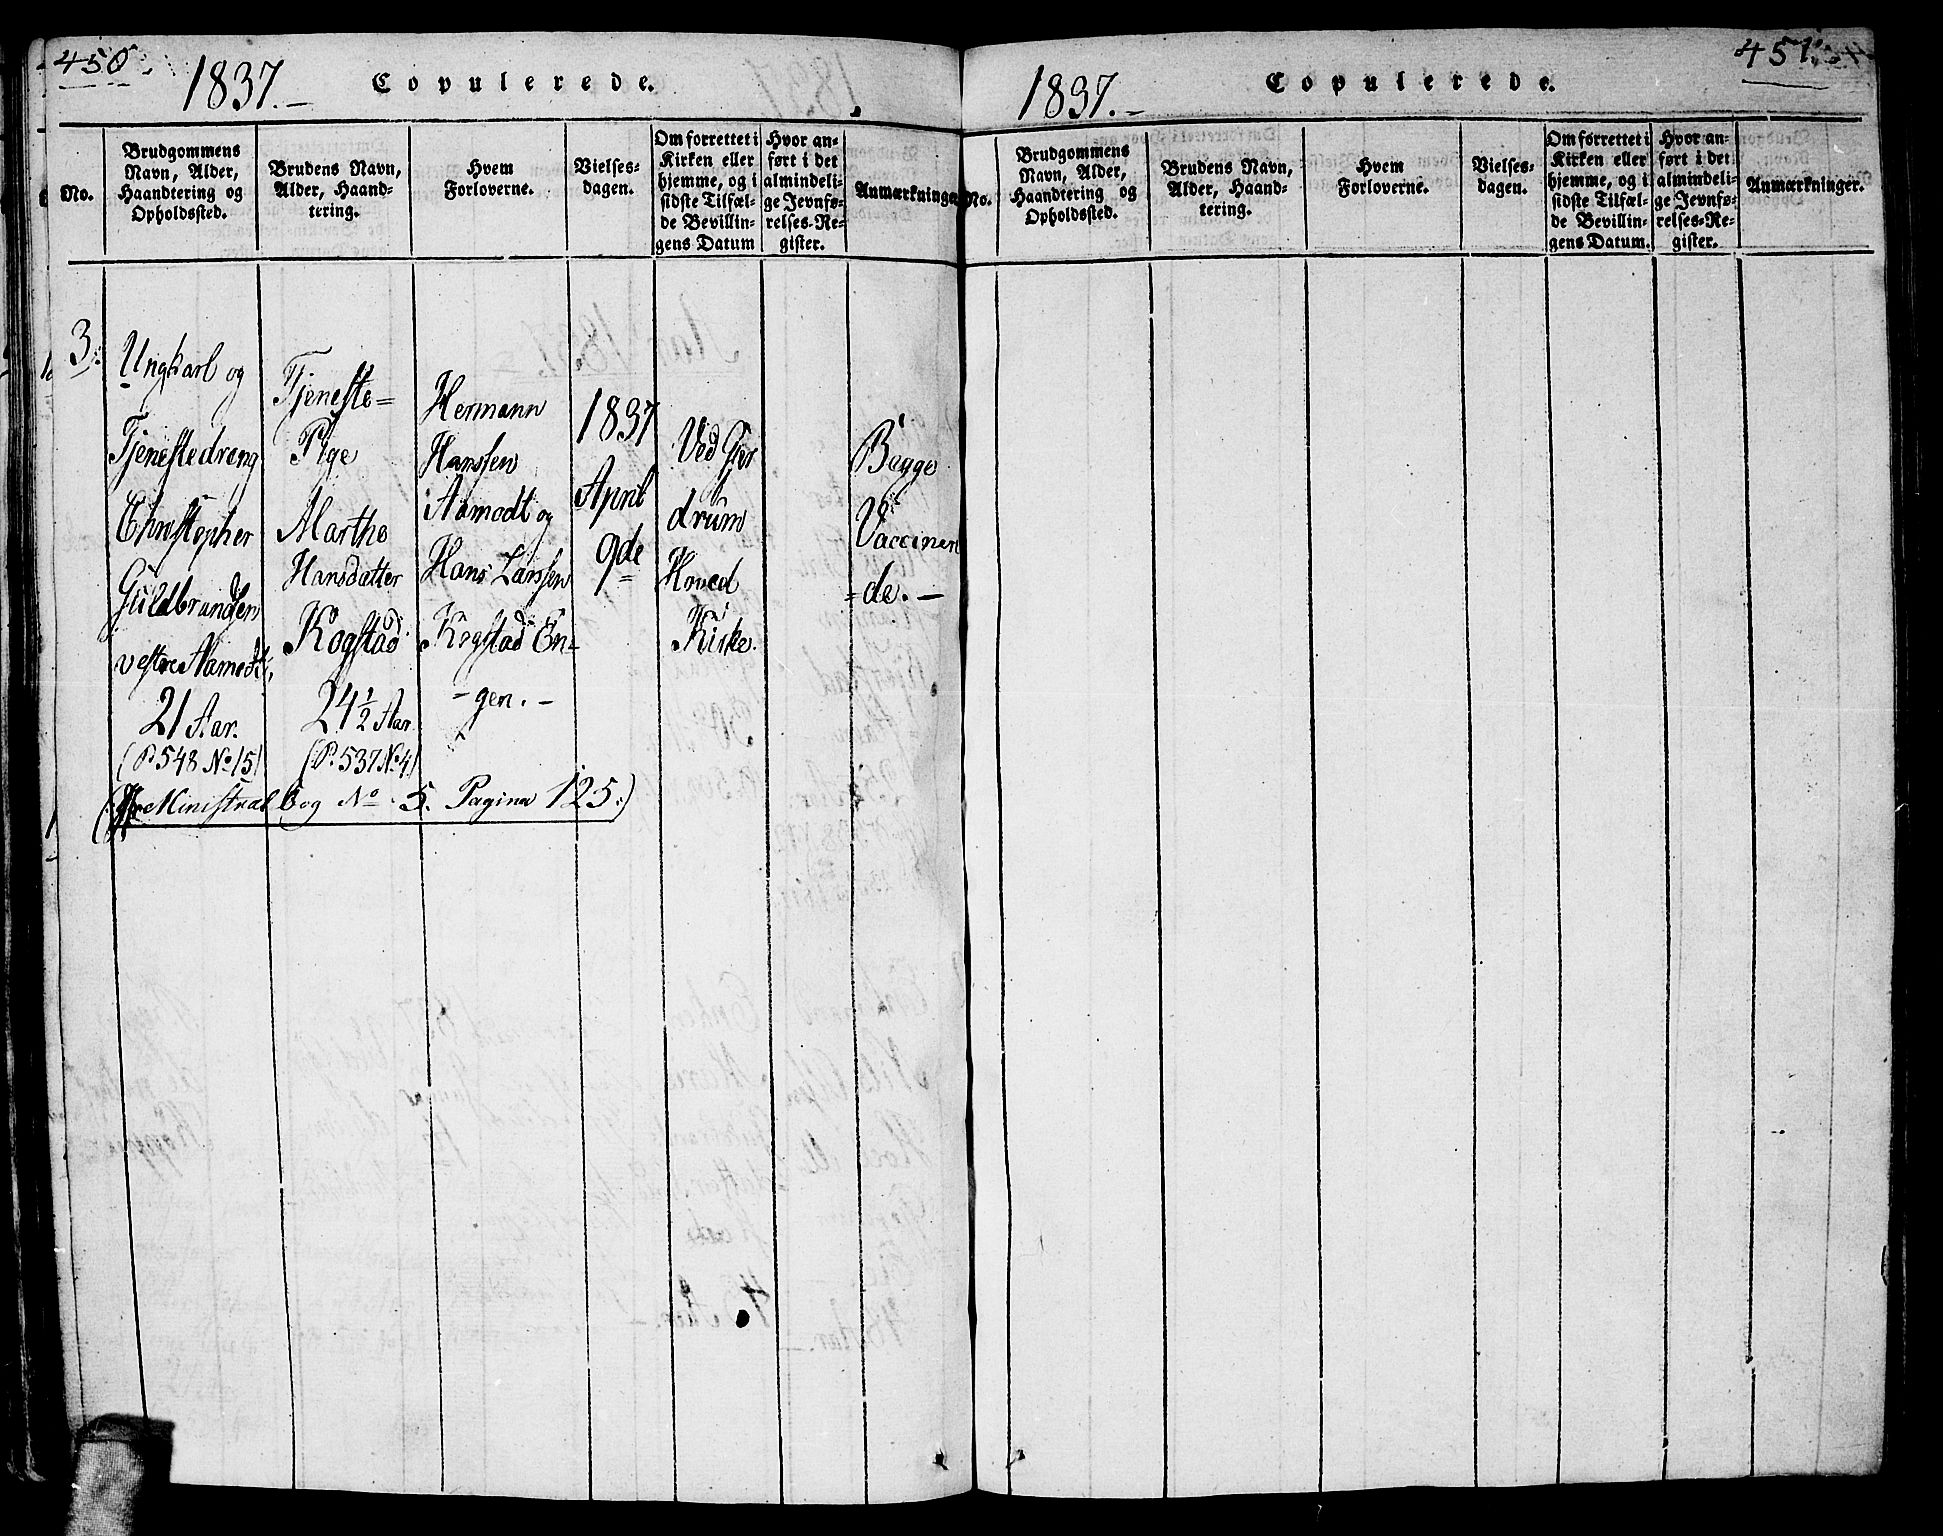 450
1837.-
Copulerede.
No.
Brudgommens
Navn, Alder,
Haandtering og
Opholdssted.
Brudens Navn,
Alder, Haand-
tering.
Hvem
Forloverne.
Vielses-
dagen.
Om forrettet i
Kirken eller
hjemme, og i
sidste Tilfæl-
de Bevillin-
gens Datum
Hvor an-
ført i det
almindeli-
ge Jevnfø-
relses-Re-
gister.
Anmærkninger
3.
Ungkarl og
Tjenestedreng
Christopher
Guldbrandsen
vestre Aamodt,
21 Aar.
(P. 548 No 15)
Tjeneste=
Pige
Marthe
Hansdatter
Kogstad
24 1/2 Aar
(P. 537 No 4)
Hermann
Hanssen
Aamodt og
Hans Larssen
Kogstad En-
-gen.-
1837
April
9de
Ved Gier
drum
Hoved
Kirke.
Begge
Vaccinere
=de.-
Ministralbog No 5. Pagina 125.)
451
1837.-
Copulerede.
No.
Brudgommens
Navn, Alder,
Haandtering og
Opholdssted.
Brudens Navn,
Alder, Haand-
tering.
Hvem
Forloverne.
Vielses-
dagen.
Om forrettet i
Kirken eller
hjemme, og i
sidste Tilfæl-
de Bevillin-
gens Datum.
Hvor an-
ført i det
almindeli-
ge Jevnfø-
relses-Re-
gister.
Anmærkninger.